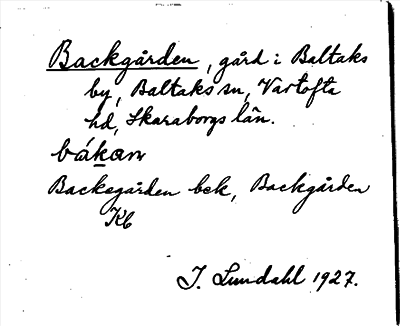 Backgården, gård i Baltaks
by, Baltaks sn, Vartofta
hd, Skaraborgs län.
bákan
Backegården bek, Backgården
Kb
J. Lundahl 1927.